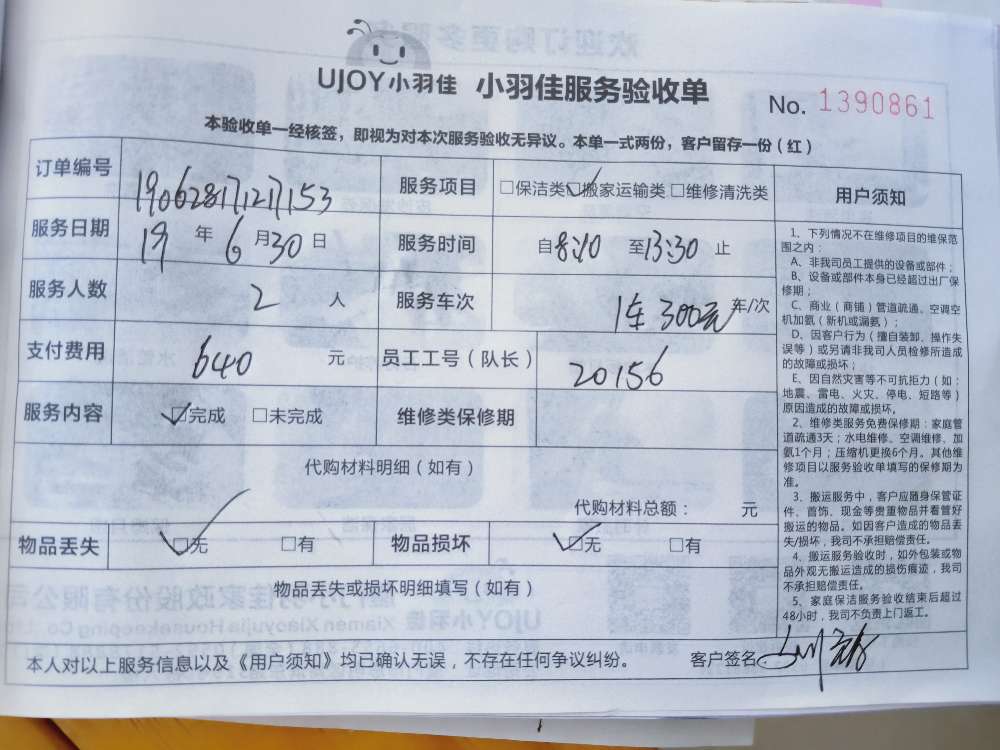 UJOY小羽佳 小羽佳服务验收单 No. 1390861
本验收单一经核签，即视为对本次服务验收无异议。本单一式两份，客户留存一份（红）
订单编号 190628171217153 服务项目 □保洁类 ☑搬家运输类 □维修清洗类 用户须知
服务日期 19 年 6 月 30 日 服务时间 自8:10 至13:30 止
服务人数 2 人 服务车次 1车 300元 车/次
支付费用 640 元 员工工号（队长） 20156
服务内容 ☑完成 □未完成 维修类保修期
代购材料明细（如有）
代购材料总额： 元
物品丢失 ☑无 □有 物品损坏 ☑无 □有
物品丢失或损坏明细填写（如有）
1、下列情况不在维修项目的维保范
围之内：
A、非我司员工提供的设备或部件；
B、设备或部件本身已经超过出厂保
修期；
C、商业（商铺）管道疏通、空调空
机加氨（新机或漏氨）；
D、因客户行为（擅自装卸、操作失
误等）或另请非我司人员检修所造成
的故障或损坏；
E、因自然灾害等不可抗拒力（如：
地震、雷电、火灾、停电、短路等）
原因造成的故障或损坏。
2、维修类服务免费保修期：家庭管
道疏通3天；水电维修、空调维修、加
氨1个月；压缩机更换6个月。其他维
修项目以服务验收单填写的保修期为
准。
3、搬运服务中，客户应随身保管证
件、首饰、现金等贵重物品并看管好
搬运的物品。如因客户造成的物品丢
失/损坏，我司不承担赔偿责任。
4、搬运服务验收时，如外包装或物
品外观无搬运造成的损伤痕迹，我司
不承担赔偿责任。
5、家庭保洁服务验收结束后超过
48小时，我司不负责上门返工。
本人对以上服务信息以及《用户须知》均已确认无误，不存在任何争议纠纷。 客户签名：